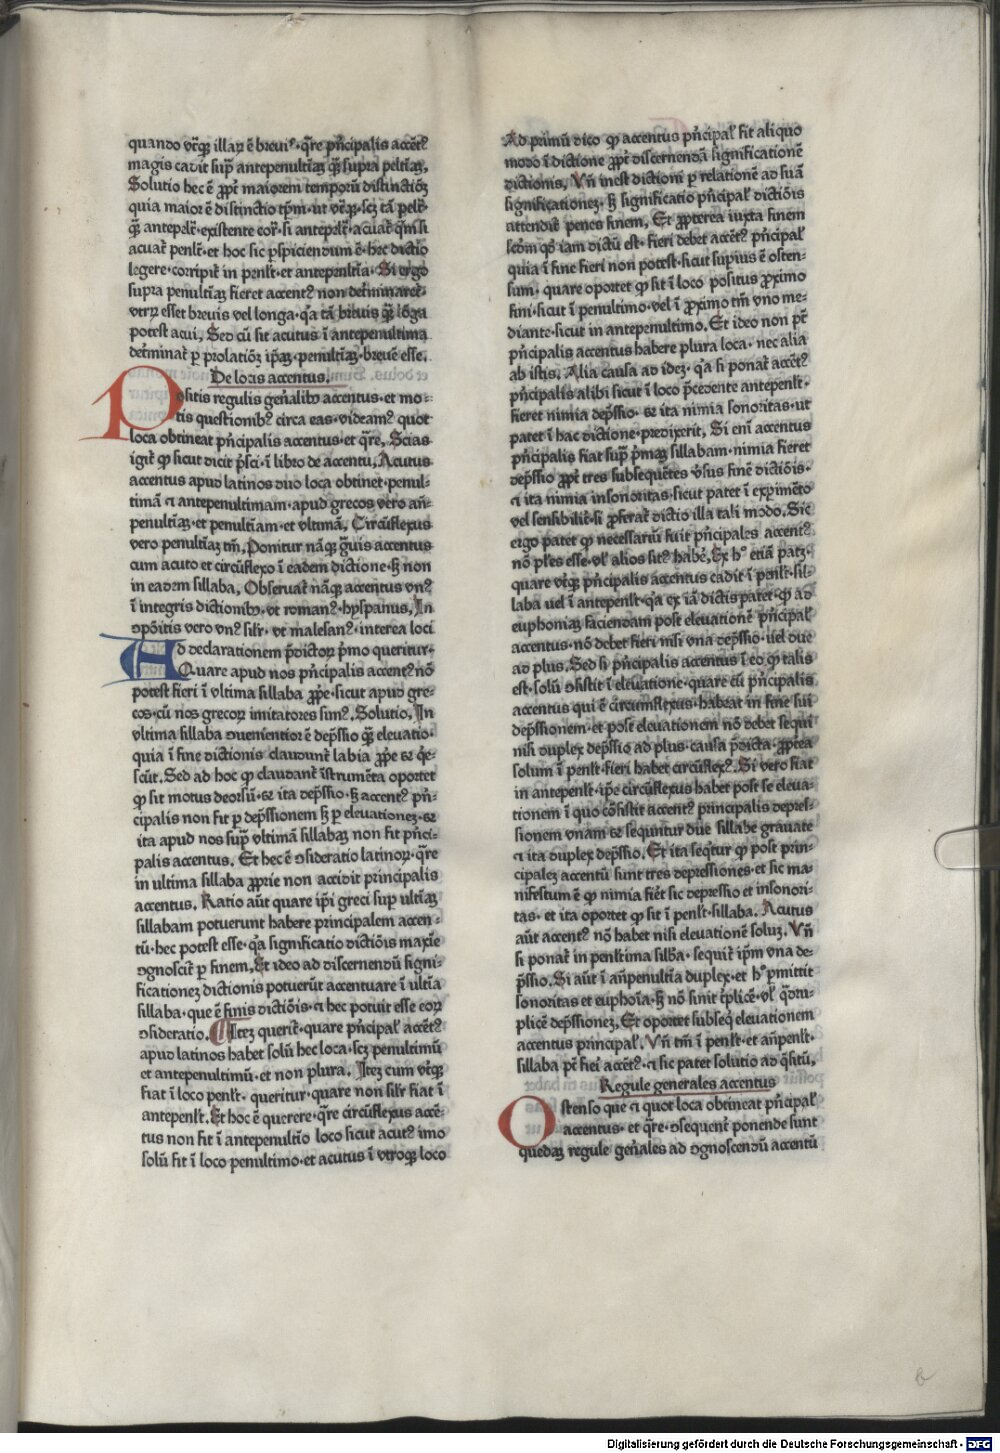 quando vtr̄q; illaꝝ ē breuiꝰ. q̄re pn̄cipalis accētꝰ
magis cadit sup̄ antepenultīaꝫ q̄ꝫ supra peltīaꝫ.
Solutio hec ē ꝓpt̄ maiorem temporū distinctiōꝫ
quia maior ē distinctio tp̄m. ut vtr̄q; scꝫ tā pelt̄.
q̄ꝫ antepelt̄. existente cor̄. si antepelt̄. acuat̄ q̄m si
acuat̄ penlt̄. et hoc sic ꝑspiciendum ē. hec dictio
legere. corripit̄ in penlt̄. et antepenltīa. Si ergo
supra penultīaꝫ fieret accentꝰ non det̄minaret̄.
vtrꝝ esset breuis vel longa. q̄a tā breuis q̄ꝫ lōga
potest acui. Sed cū sit acutus ī antepenultima
det̄minat̄ ꝑ prolatiōꝫ ip̄aꝫ. penultīaꝫ. breuē esse.
De locis accentus.
Positis regulis gen̄alibꝰ accentus. et mo-
tis questionibꝰ circa eas. videamꝰ quot
loca obtineat pn̄cipalis accentus. et q̄re. Scias
igit̄ ꝙ sicut dicit p̄sci. ī libro de accentu. Acutus
accentus apud latinos duo loca obtinet. penul-
timā ⁊ antepenultimam. apud grecos vero an̄-
penultīaꝫ. et penultīam. et vltimā. Circūflexus
vero penultīaꝫ tm̄. Ponitur nāq; gͣuis accentus
cum acuto et circūflexo ī eadem dictione. sꝫ non
in eadem sillaba. Obseruat̄ nāq; accentus vnꝰ
ī integris dictionibꝰ. vt romanꝰ. hyspanus. In
ꝯpōitis vero vnꝰ silr̄. vt malesanꝰ. interea loci
Ad declarationem p̄dictoꝝ pͥmo queritur.
Quare apud nos pn̄cipalis accentꝰ nō
potest fieri ī vltima sillaba ꝓpͥe. sicut apud gre-
cos. cū nos grecoꝝ imitatores simꝰ. Solutio. In
vltima sillaba ꝯuenientior ē dep̄ssio q̄ꝫ eleuatio.
quia ī fine dictionis claudunt̄ labia ꝓpͥe ⁊ q̄e-
scūt. Sed ad hoc ꝙ claudant̄ īstrumēta oportet
ꝙ sit motus deorsū. ⁊ ita dep̄ssio. sꝫ accentꝰ pn̄-
cipalis non fit ꝑ dep̄ssionem sꝫ ꝑ eleuationeꝫ. ⁊
ita apud nos sup̄ vltimā sillabaꝫ non fit pn̄ci-
palis accentus. Et hec ē ꝯsideratio latinoꝝ. q̄re
in ultima sillaba ꝓprie non accidit principalis
accentus. Ratio aūt quare ip̄i greci sup̄ ultīaꝫ
sillabam potuerunt habere principalem accen-
tū. hec potest esse. q̄a significatio dictiōis maxīe
ꝯgnoscit̄ ꝑ finem. Et ideo ad discernendū signi-
ficationeꝫ dictionis potuerūt accentuare ī ultīa
sillaba. que ē finis dictiōis. ⁊ hec potuit esse eoꝝ
ꝯsideratio. Iteꝫ querit̄. quare pn̄cipal̄ accētꝰ
apud latinos habet solū hec loca. scꝫ penultimū
et antepenultimū. et non plura. Iteꝫ cum vtr̄q;
fiat ī loco penlt̄. queritur. quare non silr̄ fiat ī
antepenlt̄. Et hoc ē querere. q̄re circūflexus accē-
tus non fit ī antepenultīo loco sicut acutꝰ imo
solū fit ī loco penultimo. et acutus ī vtroq; loco
Ad primū dico ꝙ accentus pn̄cipal̄ fit aliquo
modo ī dictione ꝓpt̄ discernendā significationē
dictionis. Vn̄ inest dictioni ꝑ relationē ad suā
significationeꝫ. sꝫ significatio pn̄cipal̄ dictiōis
attendit̄ penes finem. Et ꝓpterea iuxta finem
scd̄m qd̄ iam dictū est. fieri debet accētꝰ pn̄cipal̄
quia ī fine fieri non potest. sicut supius ē osten-
sum. quare oportet ꝙ sit ī loco positus ꝓximo
fini. sicut ī penultimo. vel ī ꝓximo tm̄ vno me-
diante. sicut in antepenultimo. Et ideo non pt̄
pn̄cipalis accentus habere plura loca. nec alia
ab istis. Alia causa ad ideꝫ. q̄a si ponat̄ accētꝰ
pn̄cipalis alibi sicut ī loco p̄cedente antepenlt̄.
fieret nimia dep̄ssio. ⁊ ita nimia sonoritas. ut
patet ī hac dictione. predixerit. Si enī accentus
pn̄cipalis fiat sup̄ pͥmaꝫ sillabam. nimia fieret
dep̄ssio ꝓpt̄ tres subsequētes v̄sus finē dictiōis.
⁊ ita nimia insonoritas. sicut patet ī expimēto
vel sensibilit̄. si ꝓferat̄ dictio illa tali modo. Sic
ergo patet ꝙ necessariū fuit pn̄cipales accentꝰ
nō pl̄es esse. vl̄ alios sitꝰ habē. Ex hͦ etiā patꝫ.
quare vtr̄q; pn̄cipalis accentus cadit ī penlt̄. sil-
laba uel ī antepenlt̄. q̄a ex iā dictis patet. ꝙ ad
euphoniaꝫ faciendam post eleuationē pn̄cipal̄
accentus. nō debet fieri nisi vna dep̄ssio. uel due
ad plus. Sed si pn̄cipalis accentus ī eo ꝙ talis
est. solū ꝯsistit ī eleuatione. quare cū pn̄cipalis
accentus qui ē circumflexus. habeat in fine sui
dep̄ssionem. et post eleuationem nō debet sequi
nisi duplex dep̄ssio ad plus. causa p̄dicta. ꝓpt̄ea
solum ī penlt̄. fieri habet circūflexꝰ. Si vero fiat
in antepenlt̄. ip̄e circūflexus habet post se eleua-
tionem ī quo cōsistit accentꝰ principalis depres-
sionem vnam ⁊ sequntur due sillabe grauate
⁊ ita duplex dep̄ssio. Et ita seq̄tur ꝙ post prin-
cipaleꝫ accentū sunt tres depressiones. et sic ma-
nifestum ē ꝙ nimia fiet sic depressio et insonori-
tas. et ita oportet ꝙ sit ī penlt̄. sillaba. Acutus
aūt accentꝰ nō habet nisi eleuationē soluꝫ. Vn̄
si ponat̄ in penltima sillꝫa. sequit̄ ip̄m vna de-
p̄ssio. Si aūt ī an̄penultīa duplex. et hͦ ꝑmittit
sonoritas et euphoīa. sꝫ nō sinit tͥplicē. vl̄ q̄dru-
plicē dep̄ssioneꝫ. Et oportet subseq̄ eleuationem
accentus principal̄. Vn̄ tm̄ ī penlt̄. et an̄penlt̄.
sillaba pt̄ fieī accētꝰ. ⁊ sic patet solutio ad q̄sitū.
Regule generales accentus
Ostenso que ⁊ quot loca obtineat pn̄cipal̄
accentus. et q̄re. ꝯsequent̄ ponende sunt
quedaꝫ regule gen̄ales ad ꝯgnoscendū accentū
b
Digitalisierung gefördert durch die Deutsche Forschungsgemeinschaft - DFG